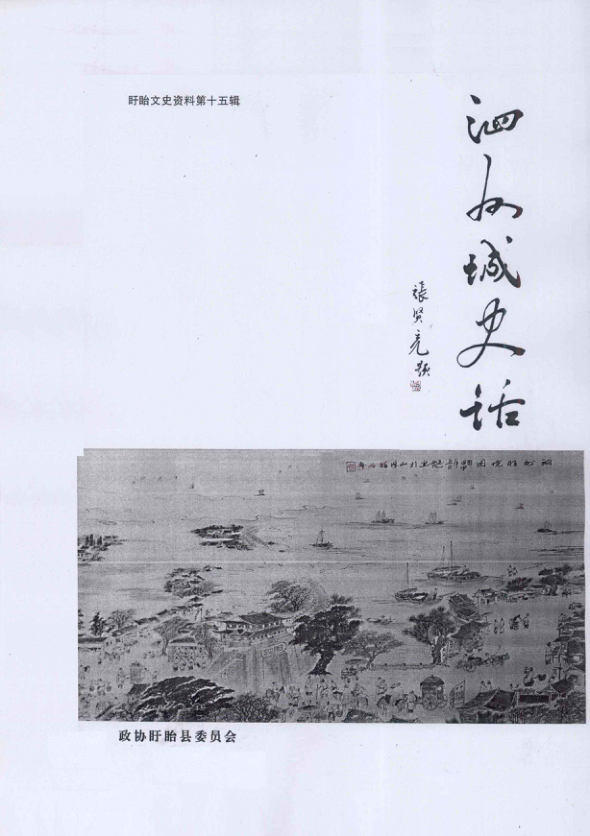 盱眙文史资料第十五辑
泗州城史话
張贤亮题
政协盱眙县委员会